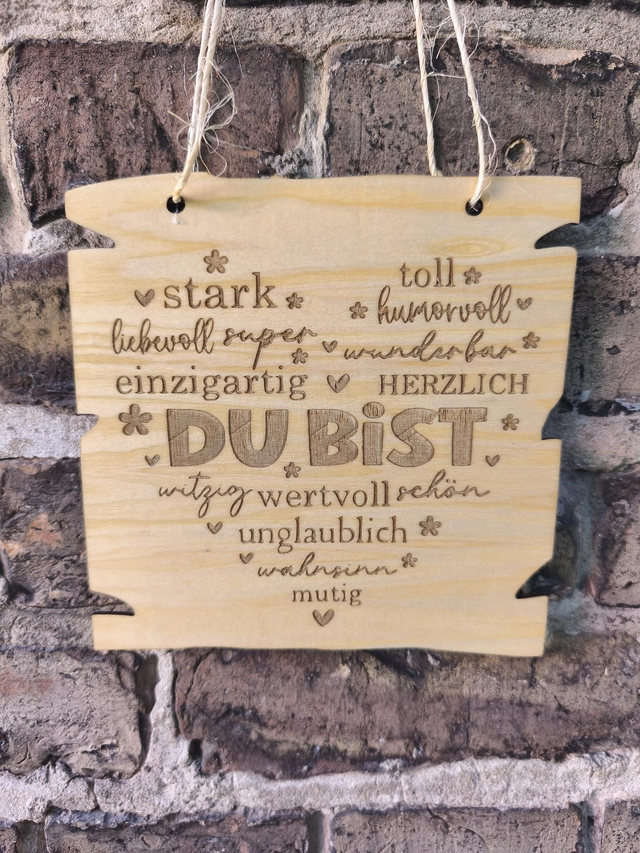 stark toll
liebevoll super humorvoll
wunderbar
einzigartig HERZLICH
DU BiST
witzig wertvoll schön
unglaublich
wahnsinn
mutig